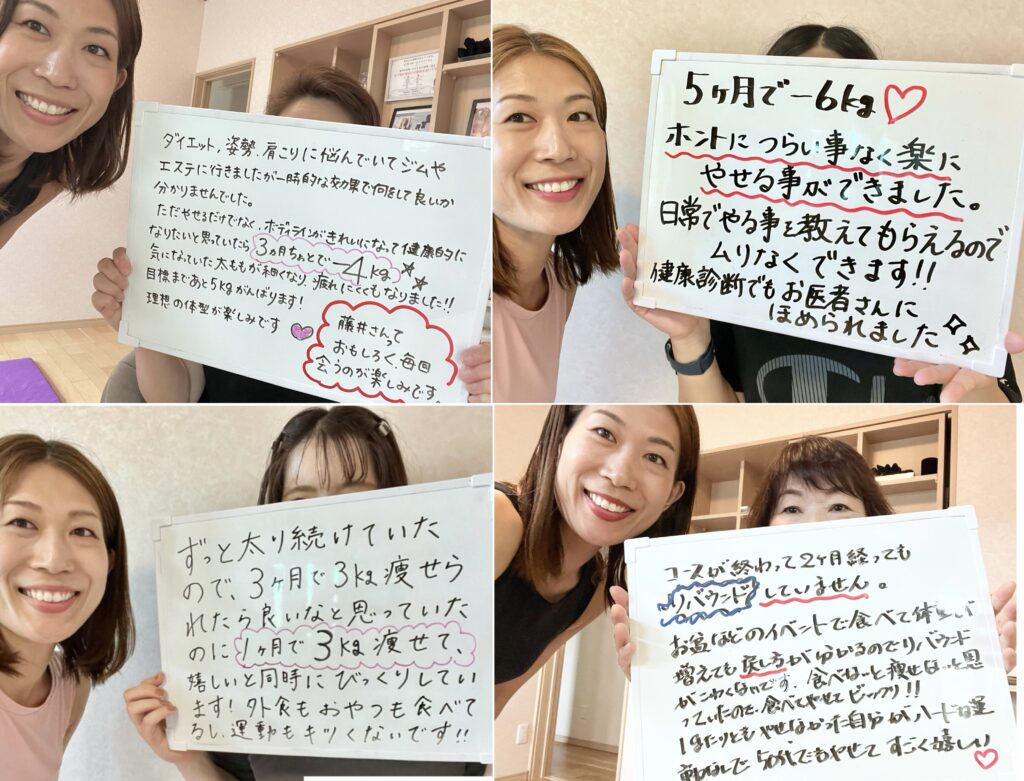 ダイエット、姿勢、肩こりに悩んでいてジムや
エステに行きましたが一時的な効果で何をして良いか
分かりませんでした。
ただやせるだけでなく、ボディラインがきれいになって健康的に
なりたいと思っていたら3ヵ月ちょっとで−4kg
気になっていた太ももが細くなり、疲れにくくもなりました!!
目標まであと5kgがんばります!
理想の体型が楽しみです
藤井さんって
おもしろく、毎回
会うのが楽しみです。
5ヶ月で−6kg♡
ホントにつらい事なく楽に
やせる事ができました。
日常でやる事を教えてもらえるので
ムリなくできます!!
健康診断でもお医者さんに
ほめられました
ずっと太り続けていた
ので、3ヶ月で3kg痩せら
れたら良いなと思っていた
のに1ヶ月で3kg痩せて、
嬉しいと同時にびっくりしてい
ます!外食もおやつも食べて
るし、運動もキツくないです!!
コースが終わって2ヶ月経っても
リバウンドしていません。
お盆などのイベントで食べて体重が
増えても戻し方が分かるのでリバウンド
がこわくないです。食べないと痩せないと思
っていたので、食べてやせてビックリ!!
1gたりともやせなかった自分がハードな運
動なしで 50代でもやせて すごく嬉しい♡